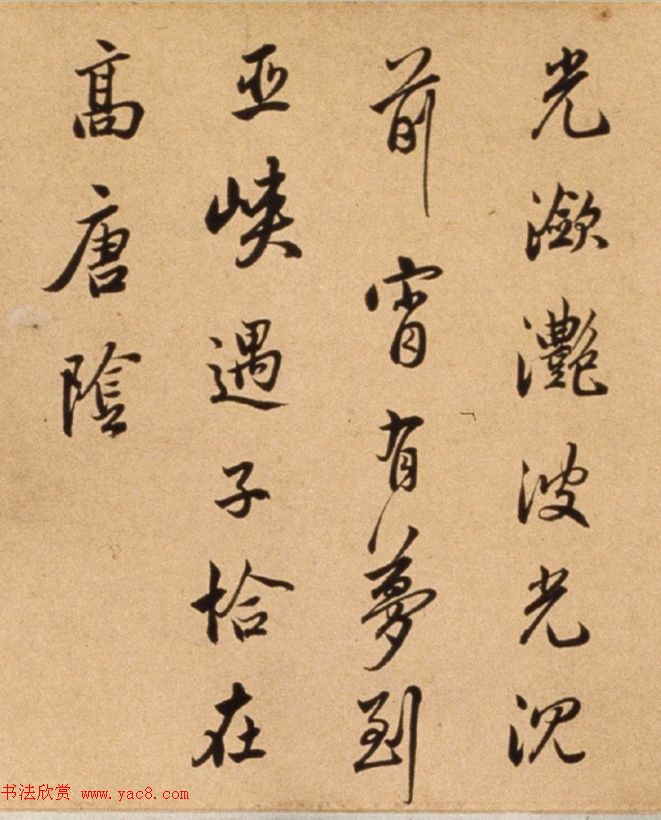 光瀲灩波光沉
前宵有夢到
巫峽遇子恰在
高唐陰
书法欣赏 www.yac8.com